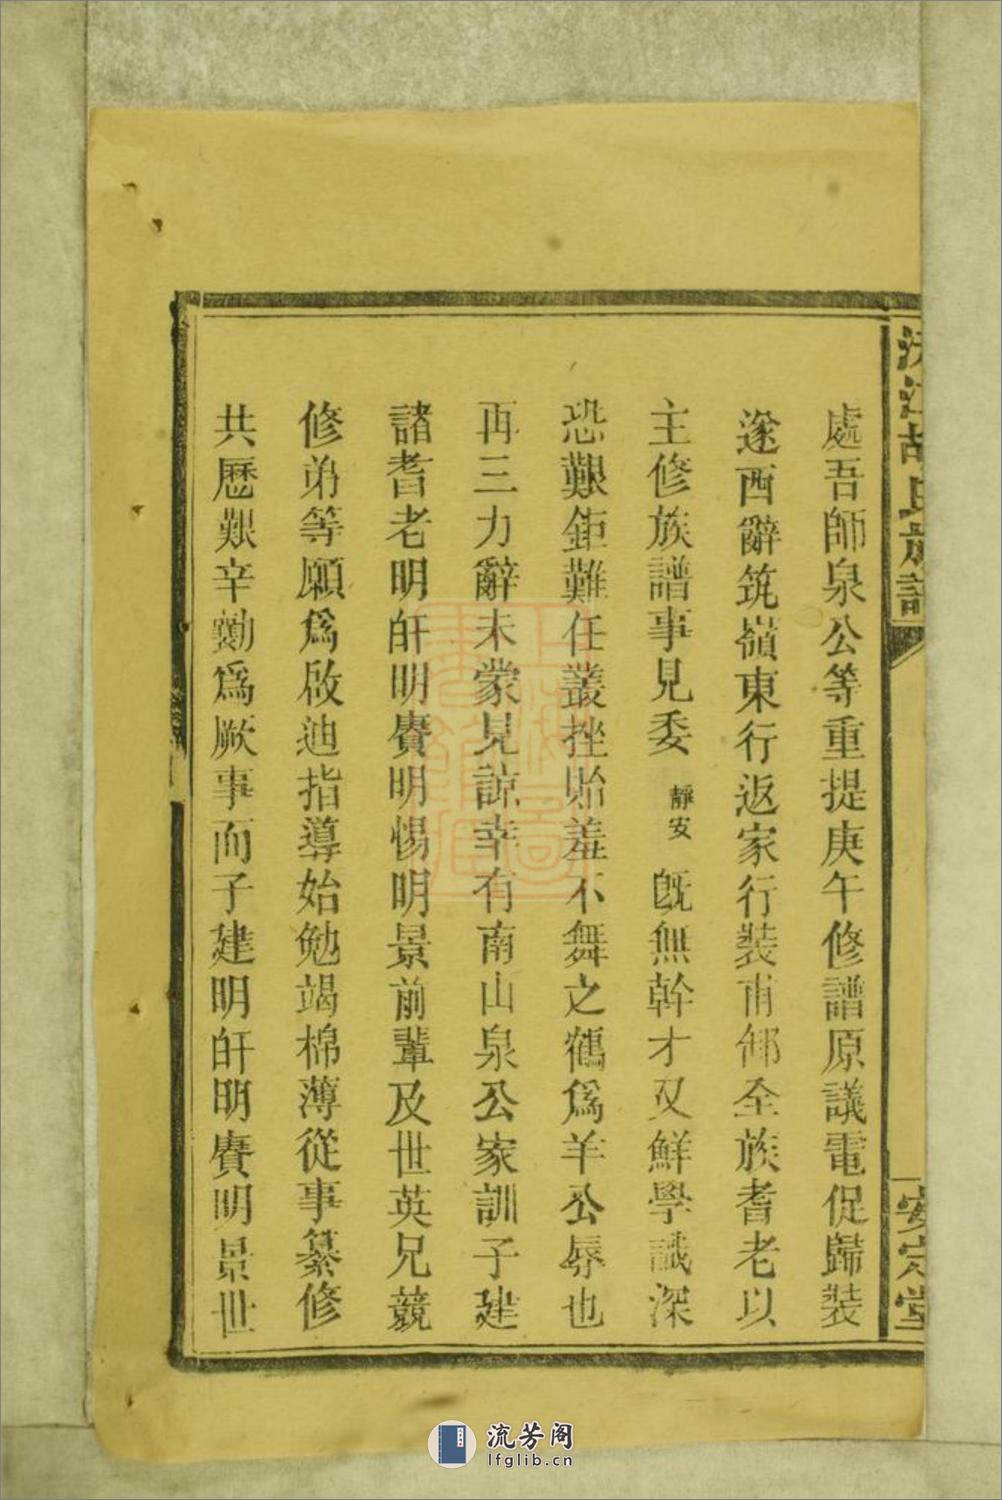 江胡氏族譜
安定堂
處吾師泉公等重提庚午修譜原議電促歸裝
遂西辭筑嶺東行返家行裝甫卸全族耆老以
主修族譜事見委靜安旣無幹才又鮮學識深
恐艱鉅難任叢挫貽羞不舞之鶴爲羊公辱也
再三力辭未蒙見諒幸有南山泉公家訓子建
諸耆老明皯明賡明惕明景前輩及世英兄競
修弟等願爲啟迪指導始勉竭棉薄從事纂修
共歷艱辛勷爲厥事而子建明皯明賡明景世
流芳阁
lfglib.cn